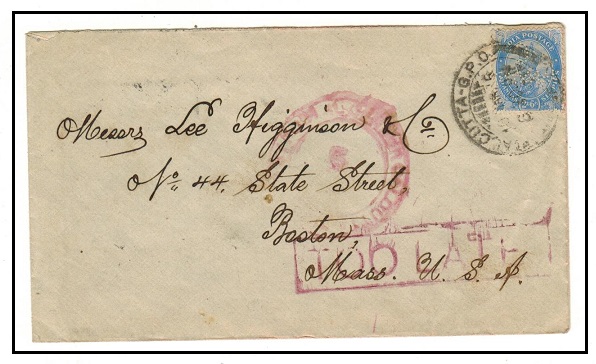 INDIA POSTAGE
CALCUTTA-G.P.O.
Messrs Lee Higginson & Co.
No. 44, State Street,
Boston,
Mass. U. S. A.
TOO LATE